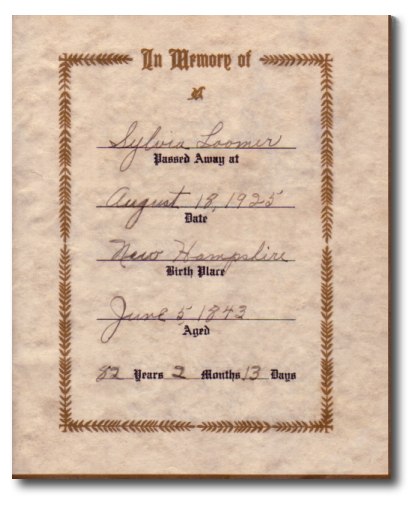 In Memory of
Sylvia Loomer
Passed Away at
August 18, 1925
Date
New Hampshire
Birth Place
June 5 1843
Aged
82 Years 2 Months 13 Days